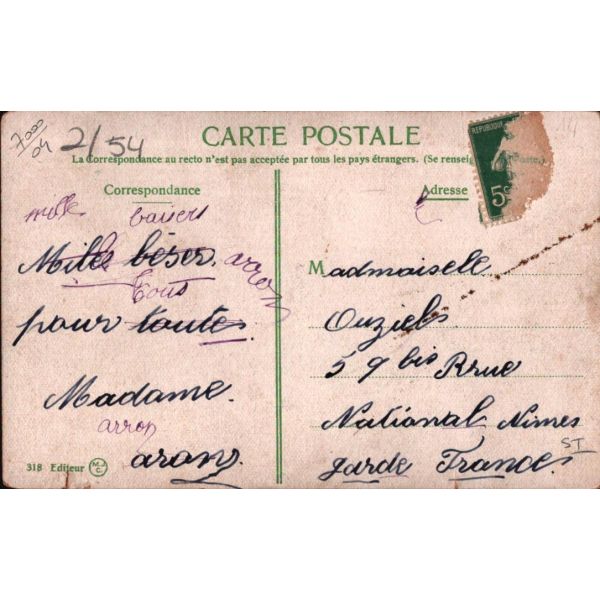 7000
04
2/54
CARTE POSTALE
La Correspondance au recto n'est pas acceptée par tous les pays étrangers. (Se renseig Poste).
REPUBLIQUE
5c
14
Correspondance
Adresse
mille baisers
Mille béser. arron
tous
pour toutes.
Madame.
arron
arons.
318 Editeur M.J.C.
Madmaisele
Ouziels
59 bis Rrue
National Nimes
garde France.
ST